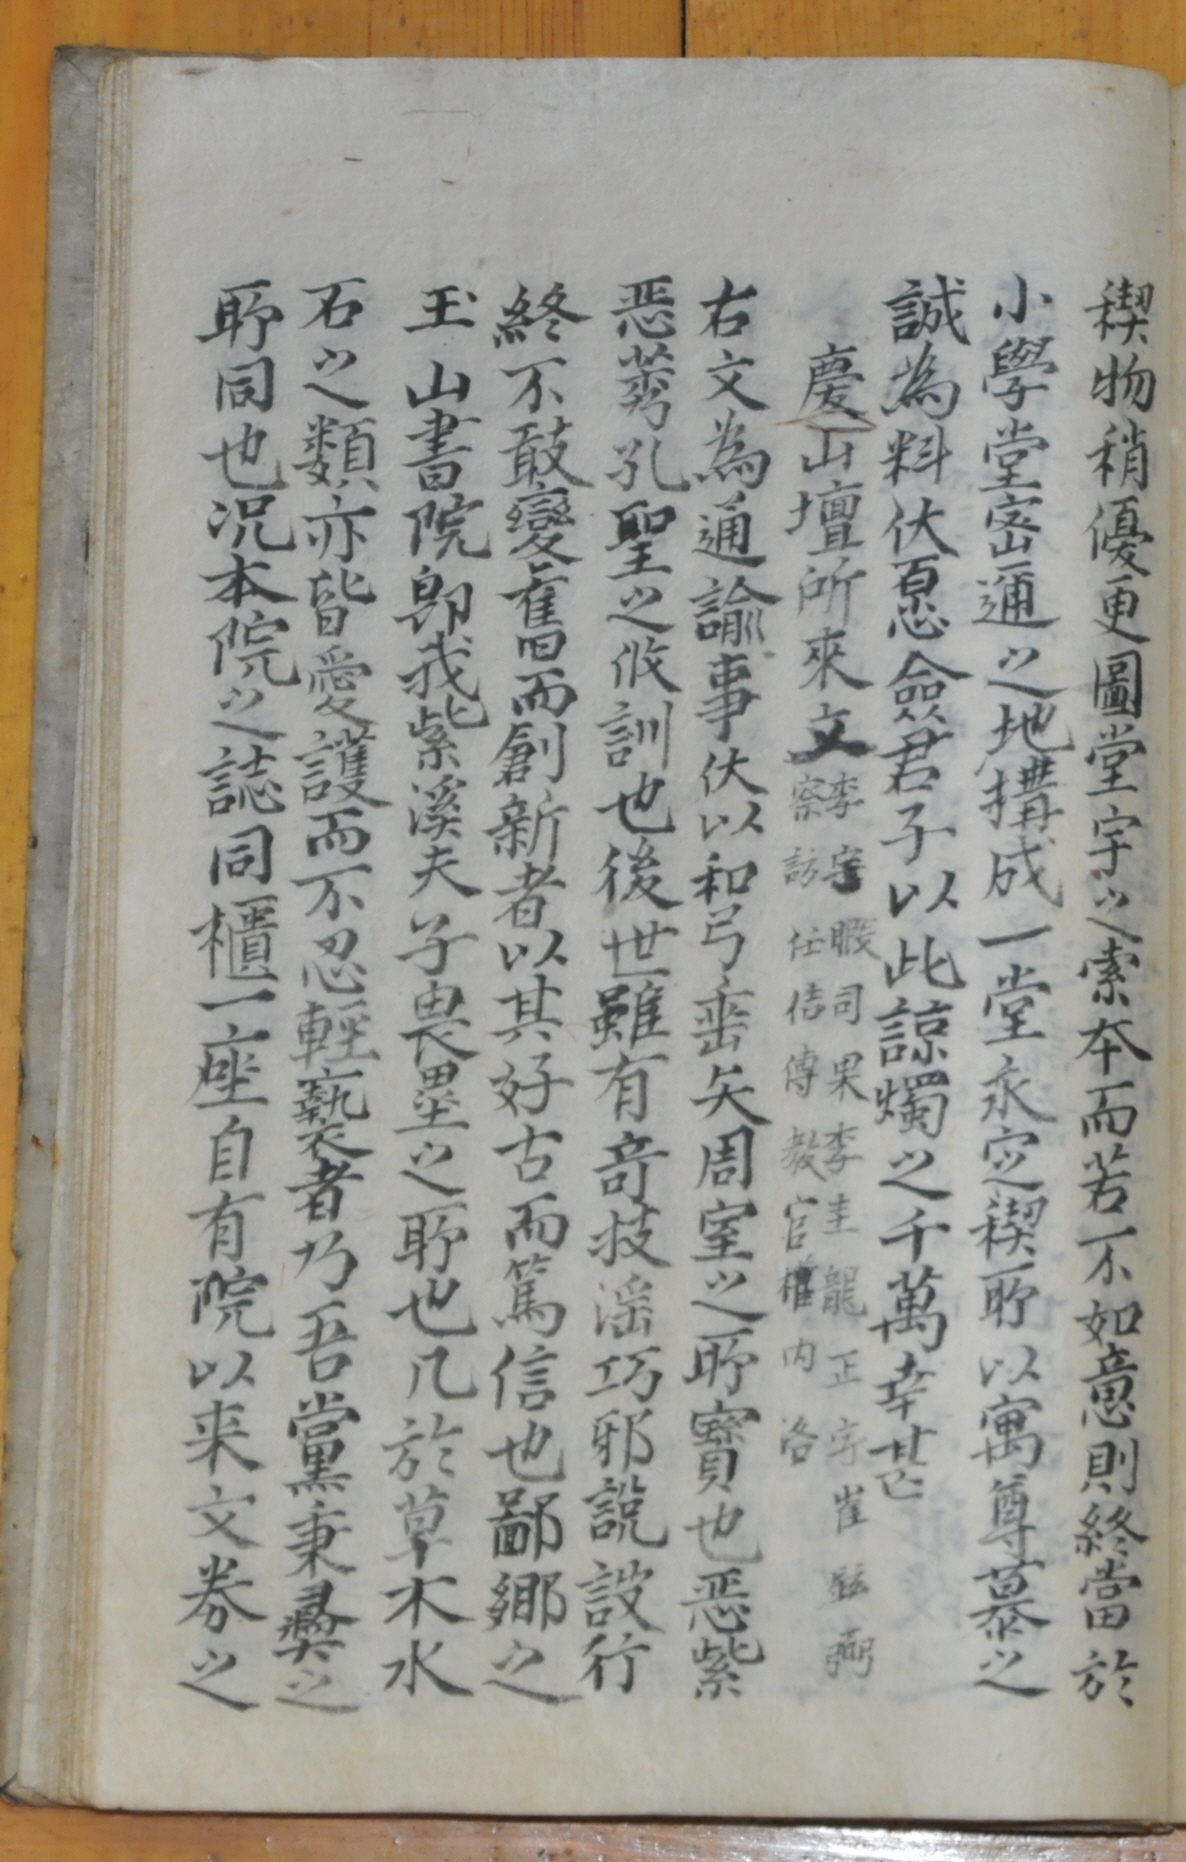 稧物稍優更圖堂宇之索本而若不如意則終當於
小學堂密邇之地搆成一堂永定稧所以寓尊慕之
誠為料伏惟僉君子以此諒燭之千萬幸甚
慶山壇所來文
李宇暇司果李圭龍正字崔 弼
察訪任佶傳教官權內洛
右文為通諭事伏以和弓垂矢周室之所寶也惡紫
惡莠孔聖之攸訓也後世雖有奇技滛巧邪說設行
終不敢變舊而創新者以其好古而篤信也鄙鄉之
玉山書院卽我紫溪夫子畏壘之所也凡於草木水
石之類亦皆愛護而不忍輕褻者乃吾黨秉彝之
所同也况本院之誌同櫃一座自有院以来文券之